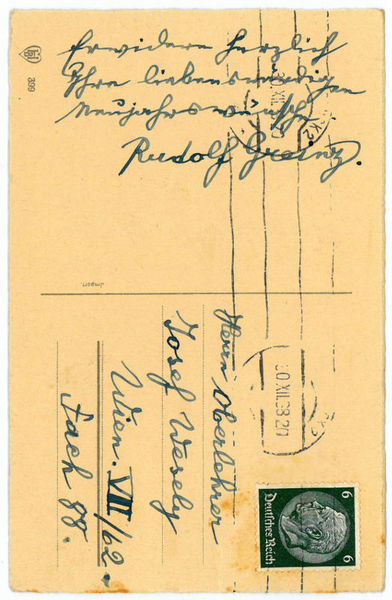 Erwidern herzlich
Ihre liebenswürdigen
Neujahrswünsche
Rudolf Greinz.
309
30.XII.38.20
Herrn Oberlehrer
Josef Wesely
Wien. VII/62.
Fach 88.
30.XII.38.20
6 6
Deutsches Reich